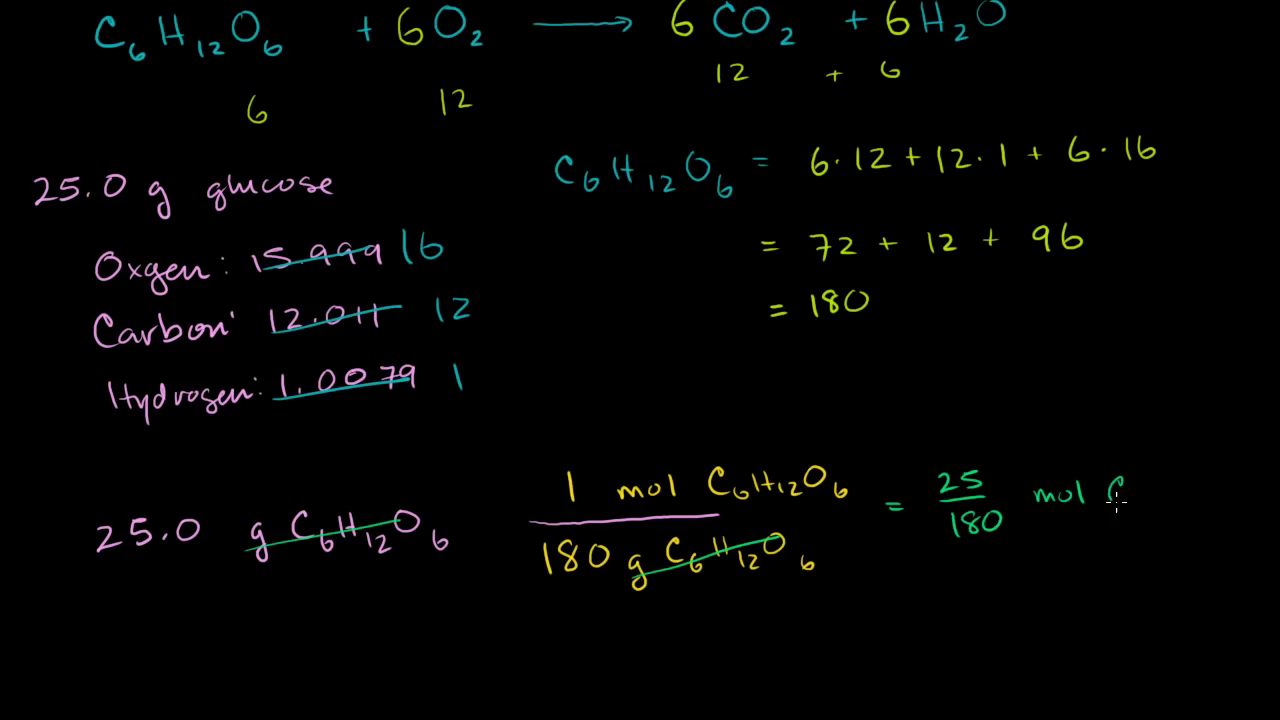 C₆H₁₂O₆ + 6O₂ → 6CO₂ + 6H₂O
6 12 12 + 6
25.0 g glucose
Oxgen: 15.999 16
Carbon: 12.011 12
Hydrogen: 1.0079 1
C₆H₁₂O₆ = 6·12 + 12·1 + 6·16
= 72 + 12 + 96
= 180
25.0 g C₆H₁₂O₆ 1 mol C₆H₁₂O₆ = 25 mol C
180 g C₆H₁₂O₆ 180